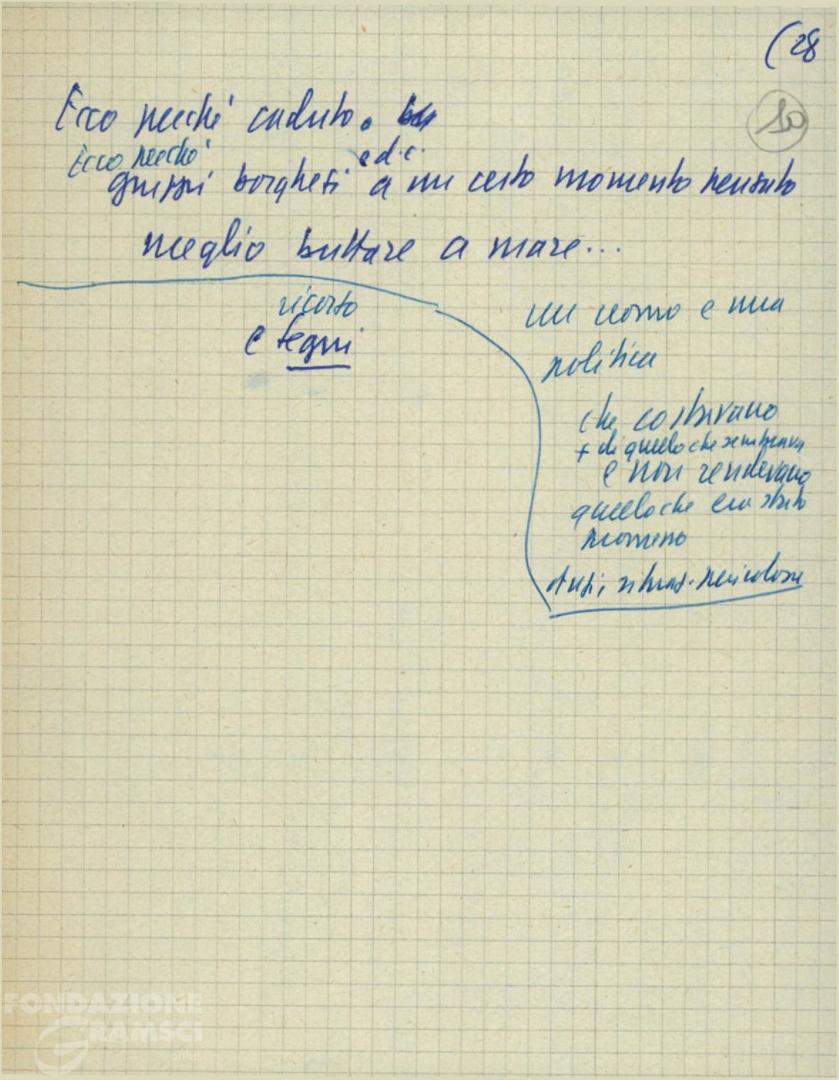 (28
10
Ecco perché caduto.
Ecco perché
e d.c.
gruppi borghesi a un certo momento pensato
meglio buttare a mare...
ricorso
e Segni
un uomo e una
politica
che costavano
+ di quello che sembrava
e non rendevano
quello che era stato
promesso
Anzi, situaz. pericolosa
FONDAZIONE
GRAMSCI